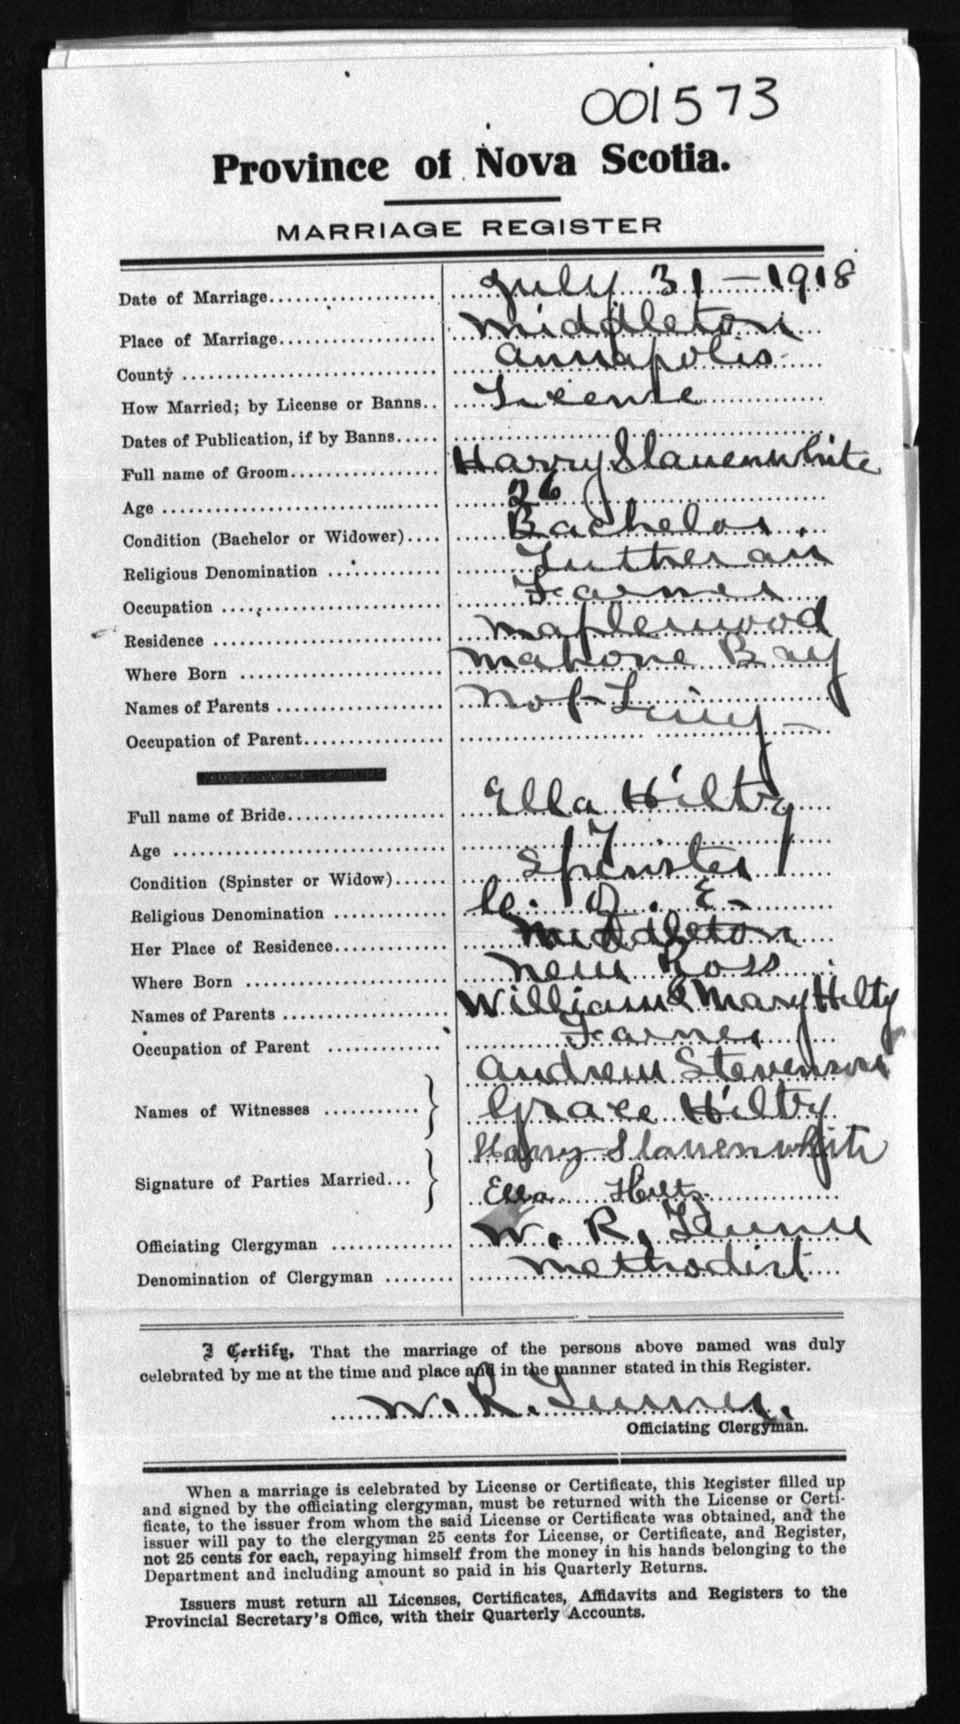 001573
Province of Nova Scotia.
MARRIAGE REGISTER
Date of Marriage July 31 - 1918
Place of Marriage Middleton
County Annapolis
How Married; by License or Banns License
Dates of Publication, if by Banns
Full name of Groom Harry Slauenwhite
Age 26
Condition (Bachelor or Widower) Bachelor
Religious Denomination Lutheran
Occupation Farmer
Residence Maplewood
Where Born Mahone Bay
Names of Parents Not Living
Occupation of Parent
Full name of Bride Ella Hilty
Age
Condition (Spinster or Widow) Spinster
Religious Denomination C. of E.
Her Place of Residence Middleton
Where Born New Ross
Names of Parents William & Mary Hilty
Occupation of Parent Farmer
Names of Witnesses Andrew Stevenson
Grace Hilty
Signature of Parties Married Harry Slauenwhite
Ella Hiltz
Officiating Clergyman W. R.
Denomination of Clergyman Methodist
I Certify, That the marriage of the persons above named was duly
celebrated by me at the time and place and in the manner stated in this Register.
W. R.
Officiating Clergyman.
When a marriage is celebrated by License or Certificate, this Register filled up
and signed by the officiating clergyman, must be returned with the License or Certi-
ficate, to the issuer from whom the said License or Certificate was obtained, and the
issuer will pay to the clergyman 25 cents for License, or Certificate, and Register,
not 25 cents for each, repaying himself from the money in his hands belonging to the
Department and including amount so paid in his Quarterly Returns.
Issuers must return all Licenses, Certificates, Affidavits and Registers to the
Provincial Secretary's Office, with their Quarterly Accounts.